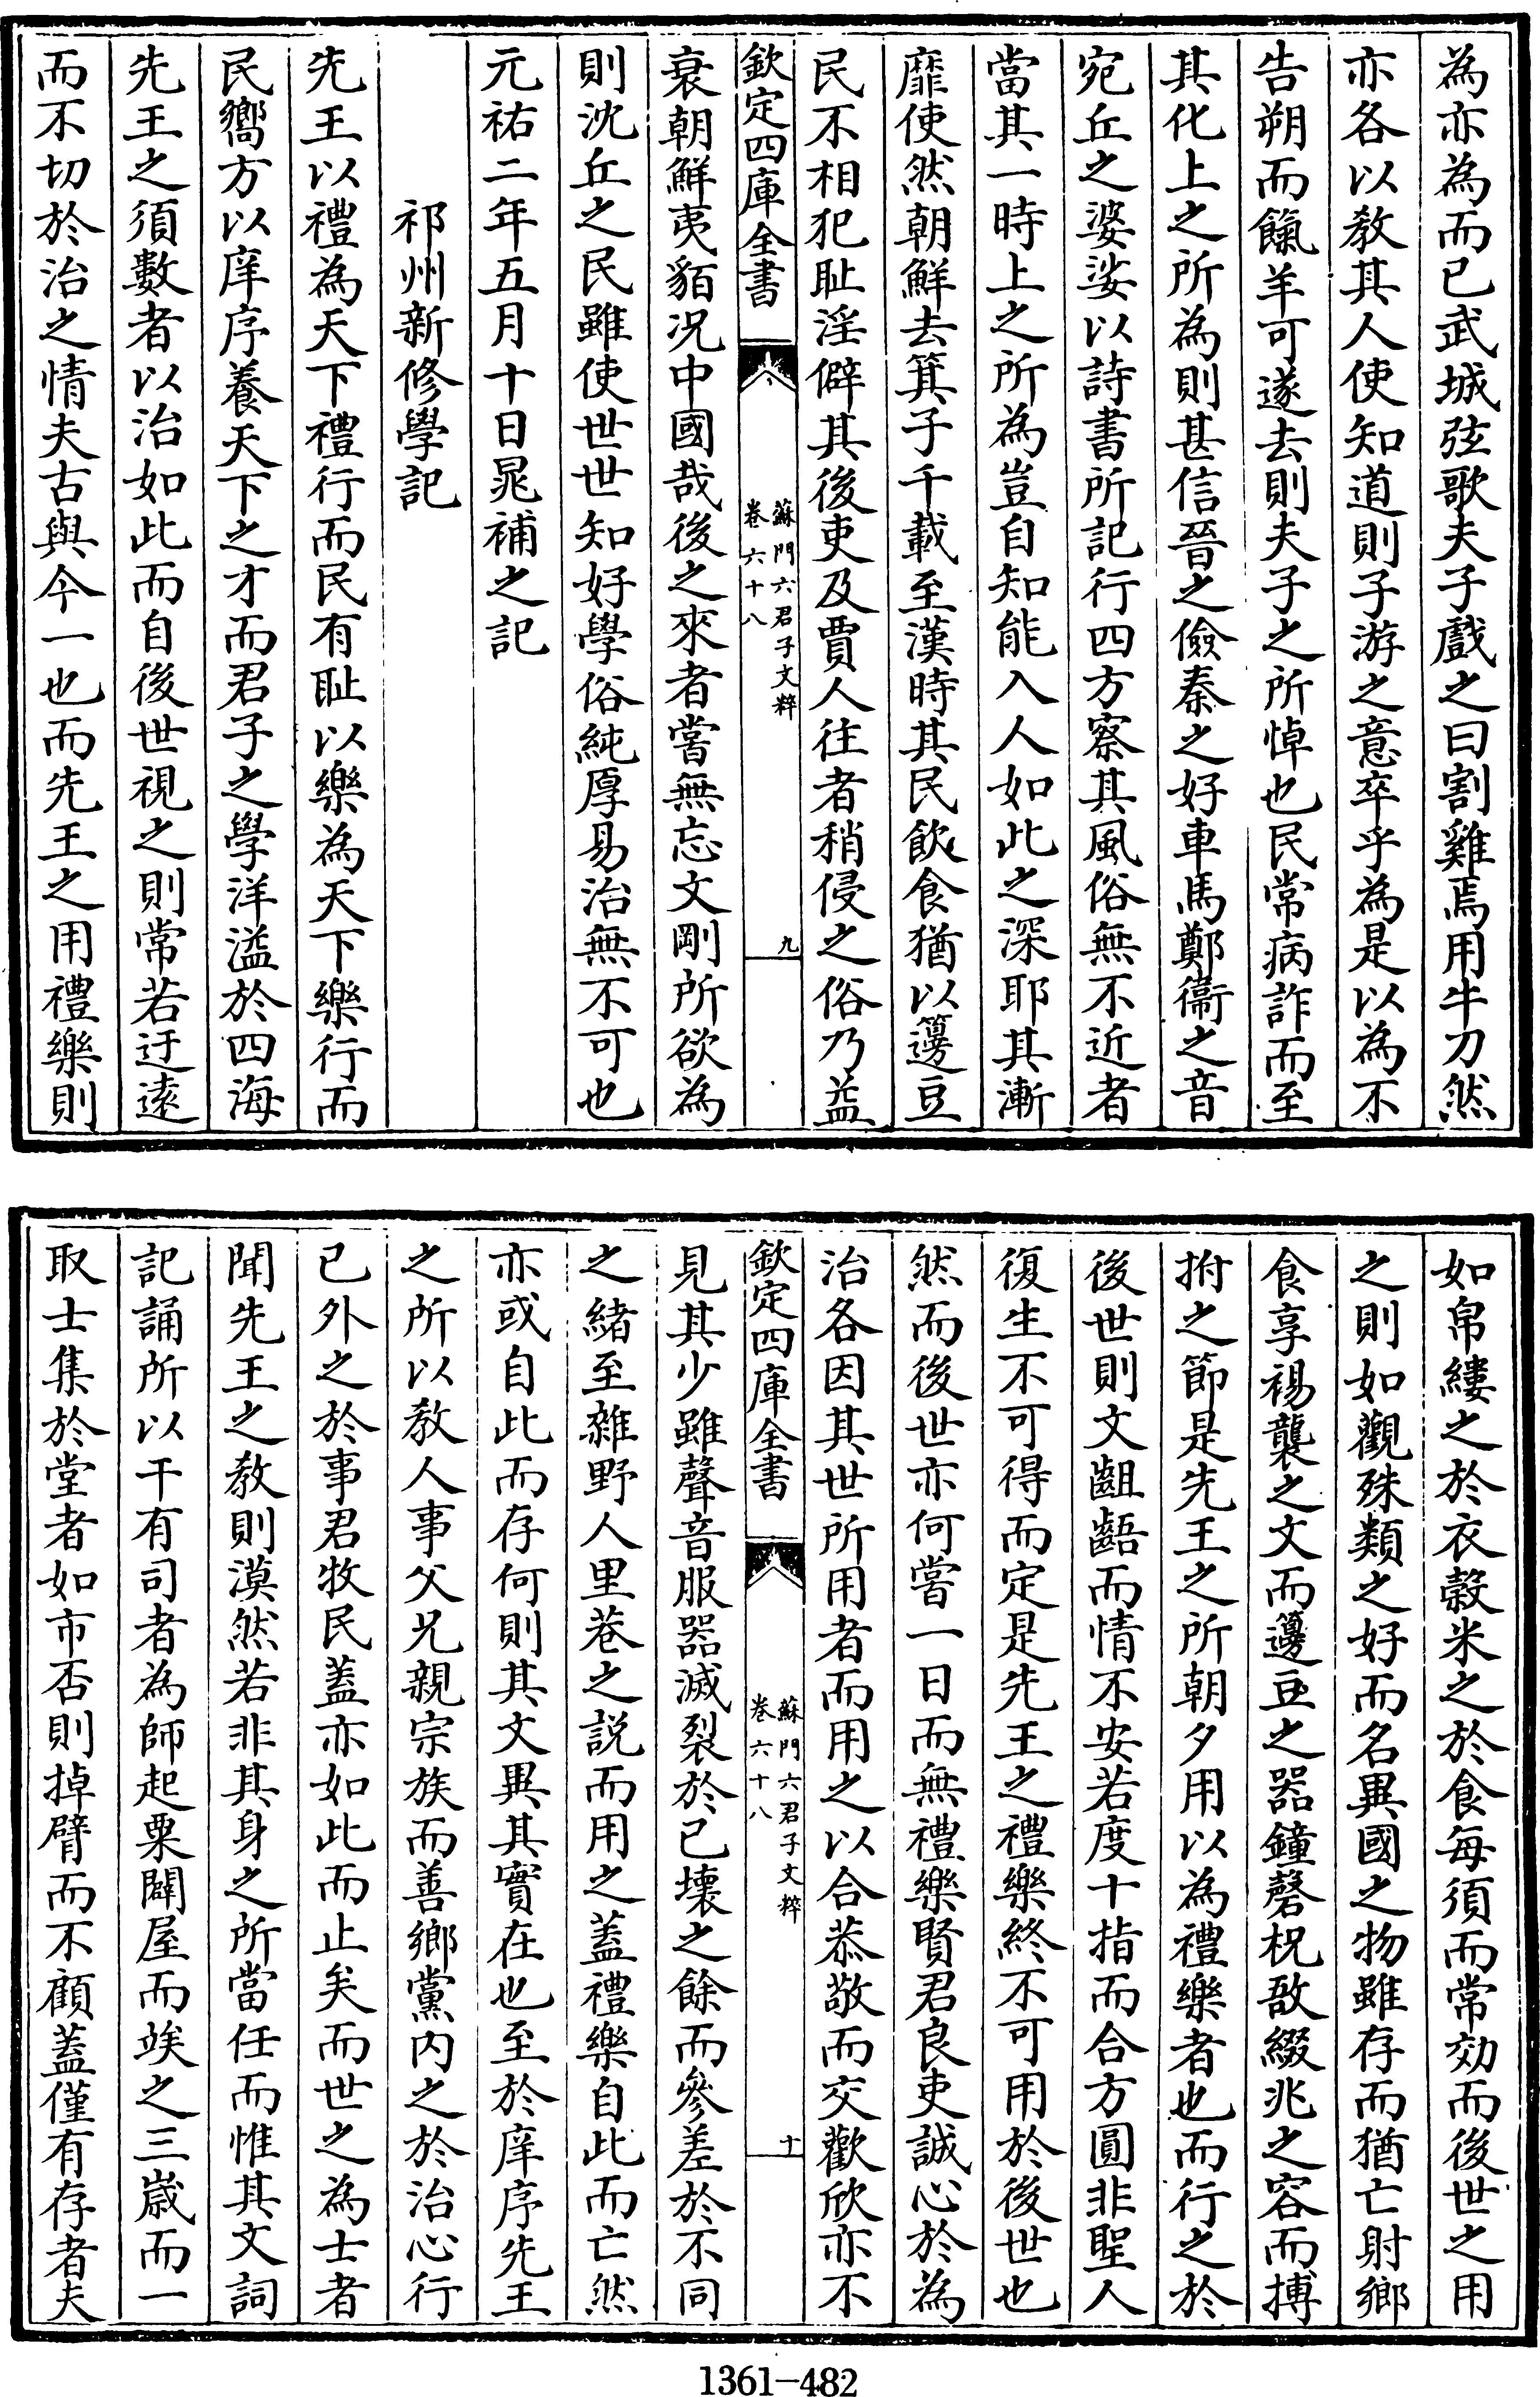 為亦為而已武城弦歌夫子戲之曰割雞焉用牛刀然
亦各以教其人使知道則子游之意卒乎為是以為不
告朔而餼羊可遂去則夫子之所悼也民常病詐而至
其化上之所為則甚信晉之儉秦之好車馬鄭衞之音
宛丘之婆娑以詩書所記行四方察其風俗無不近者
當其一時上之所為豈自知能入人如此之深耶其漸
靡使然朝鮮去箕子千載至漢時其民飲食猶以籩豆
民不相犯耻淫僻其後吏及賈人往者稍侵之俗乃益
欽定四庫全書
蘇門六君子文粹
卷六十八
九
衰朝鮮夷貊况中國哉後之來者嘗無忘文剛所欲為
則沈丘之民雖使世世知好學俗純厚易治無不可也
元祐二年五月十日晁補之記
祁州新修學記
先王以禮為天下禮行而民有耻以樂為天下樂行而
民嚮方以庠序養天下之才而君子之學洋溢於四海
先王之須數者以治如此而自後世視之則常若迂遠
而不切於治之情夫古與今一也而先王之用禮樂則
如帛縷之於衣穀米之於食每須而常効而後世之用
之則如觀殊類之好而名異國之物雖存而猶亡射鄉
食享裼襲之文而籩豆之器鐘磬柷敔綴兆之容而搏
拊之節是先王之所朝夕用以為禮樂者也而行之於
後世則文齟齬而情不安若度十指而合方圓非聖人
復生不可得而定是先王之禮樂終不可用於後世也
然而後世亦何嘗一日而無禮樂賢君良吏誠心於為
治各因其世所用者而用之以合恭敬而交歡欣亦不
欽定四庫全書
蘇門六君子文粹
卷六十八
十
見其少雖聲音服器滅裂於已壞之餘而參差於不同
之緒至雜野人里巷之説而用之蓋禮樂自此而亡然
亦或自此而存何則其文異其實在也至於庠序先王
之所以教人事父兄親宗族而善鄉黨内之於治心行
已外之於事君牧民蓋亦如此而止矣而世之為士者
聞先王之教則漠然若非其身之所當任而惟其文詞
記誦所以干有司者為師起粟闢屋而竢之三嵗而一
取士集於堂者如市否則掉臂而不顧蓋僅有存者夫
1361-482